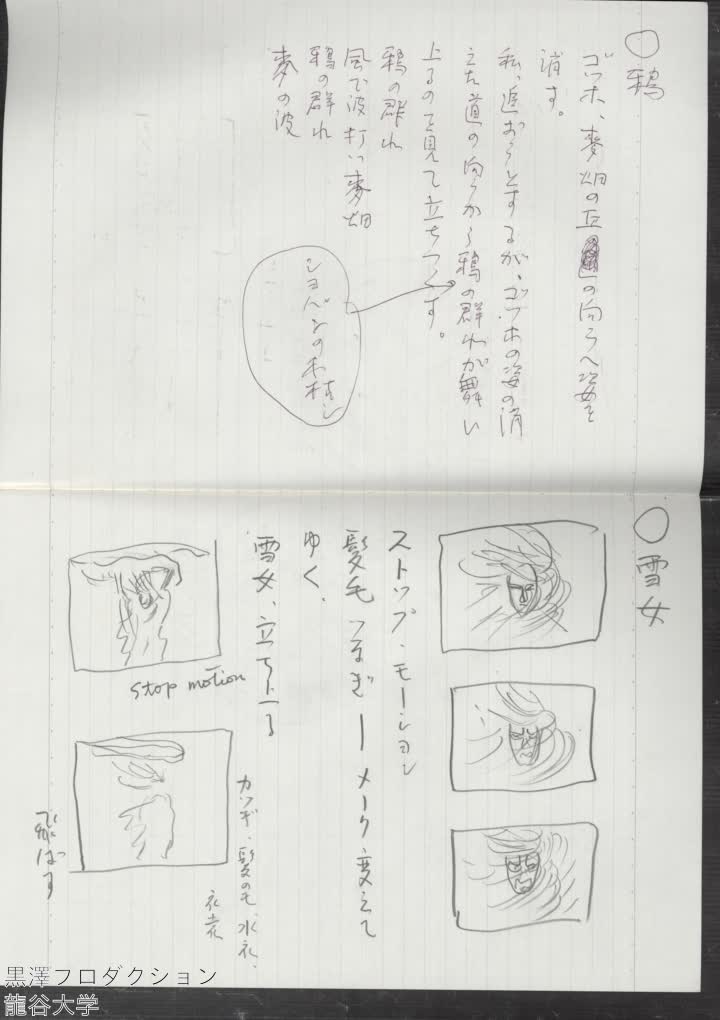 ○ 鴉
ゴッホ、麥畑の丘の向うへ姿を
消す。
私、追おうとするが、ゴッホの姿の消
えた道の向うから鴉の群れが舞い
上るのを見て立ちつくす。
鴉の群れ
風で波打つ麥畑
鴉の群れ
麥の波
ショパンの
○ 雪女
ストップ・モーション
髪毛つなぎーメーク変えて
ゆく、
雪女、立ち上る
stop motion
カツギ、髪のモ、氷衣、
衣裳
飛ばす
黒澤プロダクション
龍谷大学